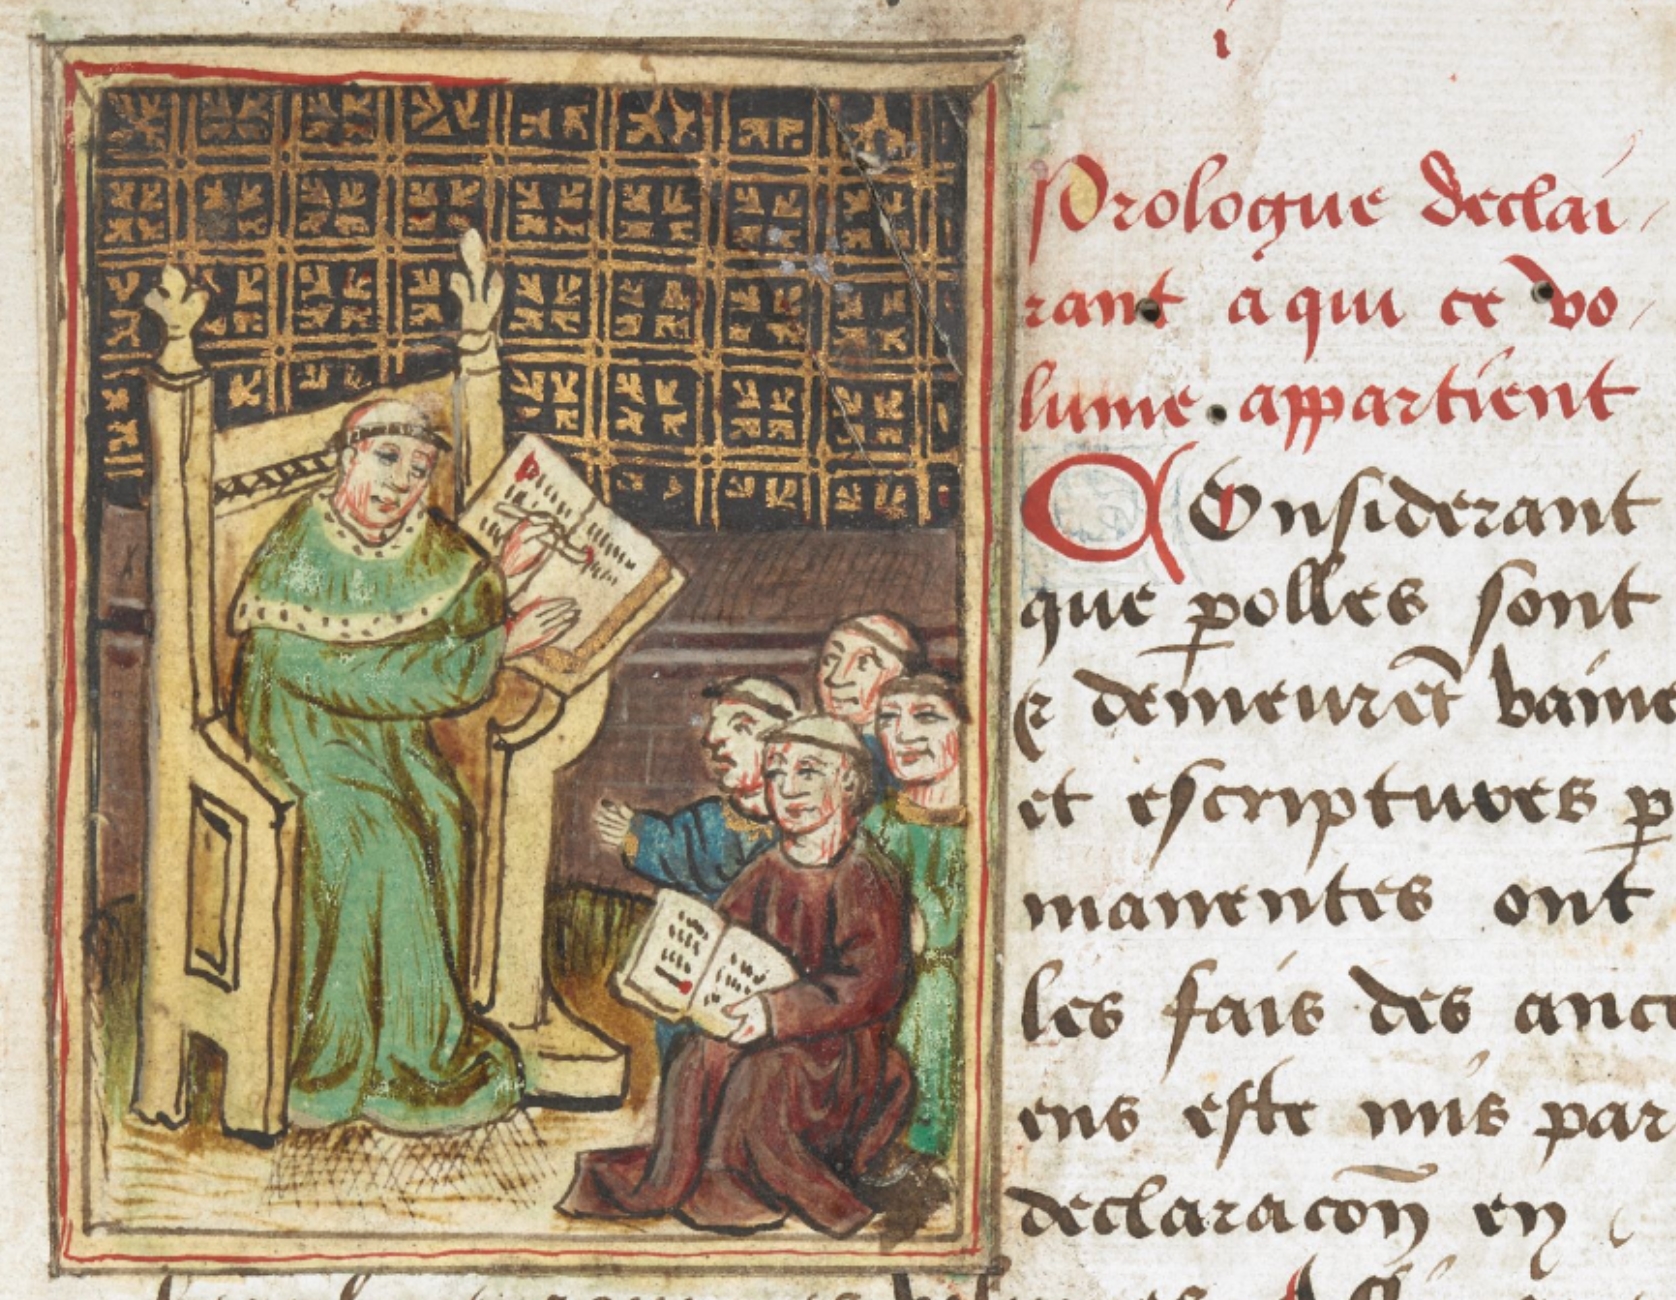 i
Prologue declai
rant a qui ce vo
lume appartient
Considerant
que polles sont
et demeuret vaine
et escriptures p
manentes ont
les fais des anci
ens este mis par
declaracon en